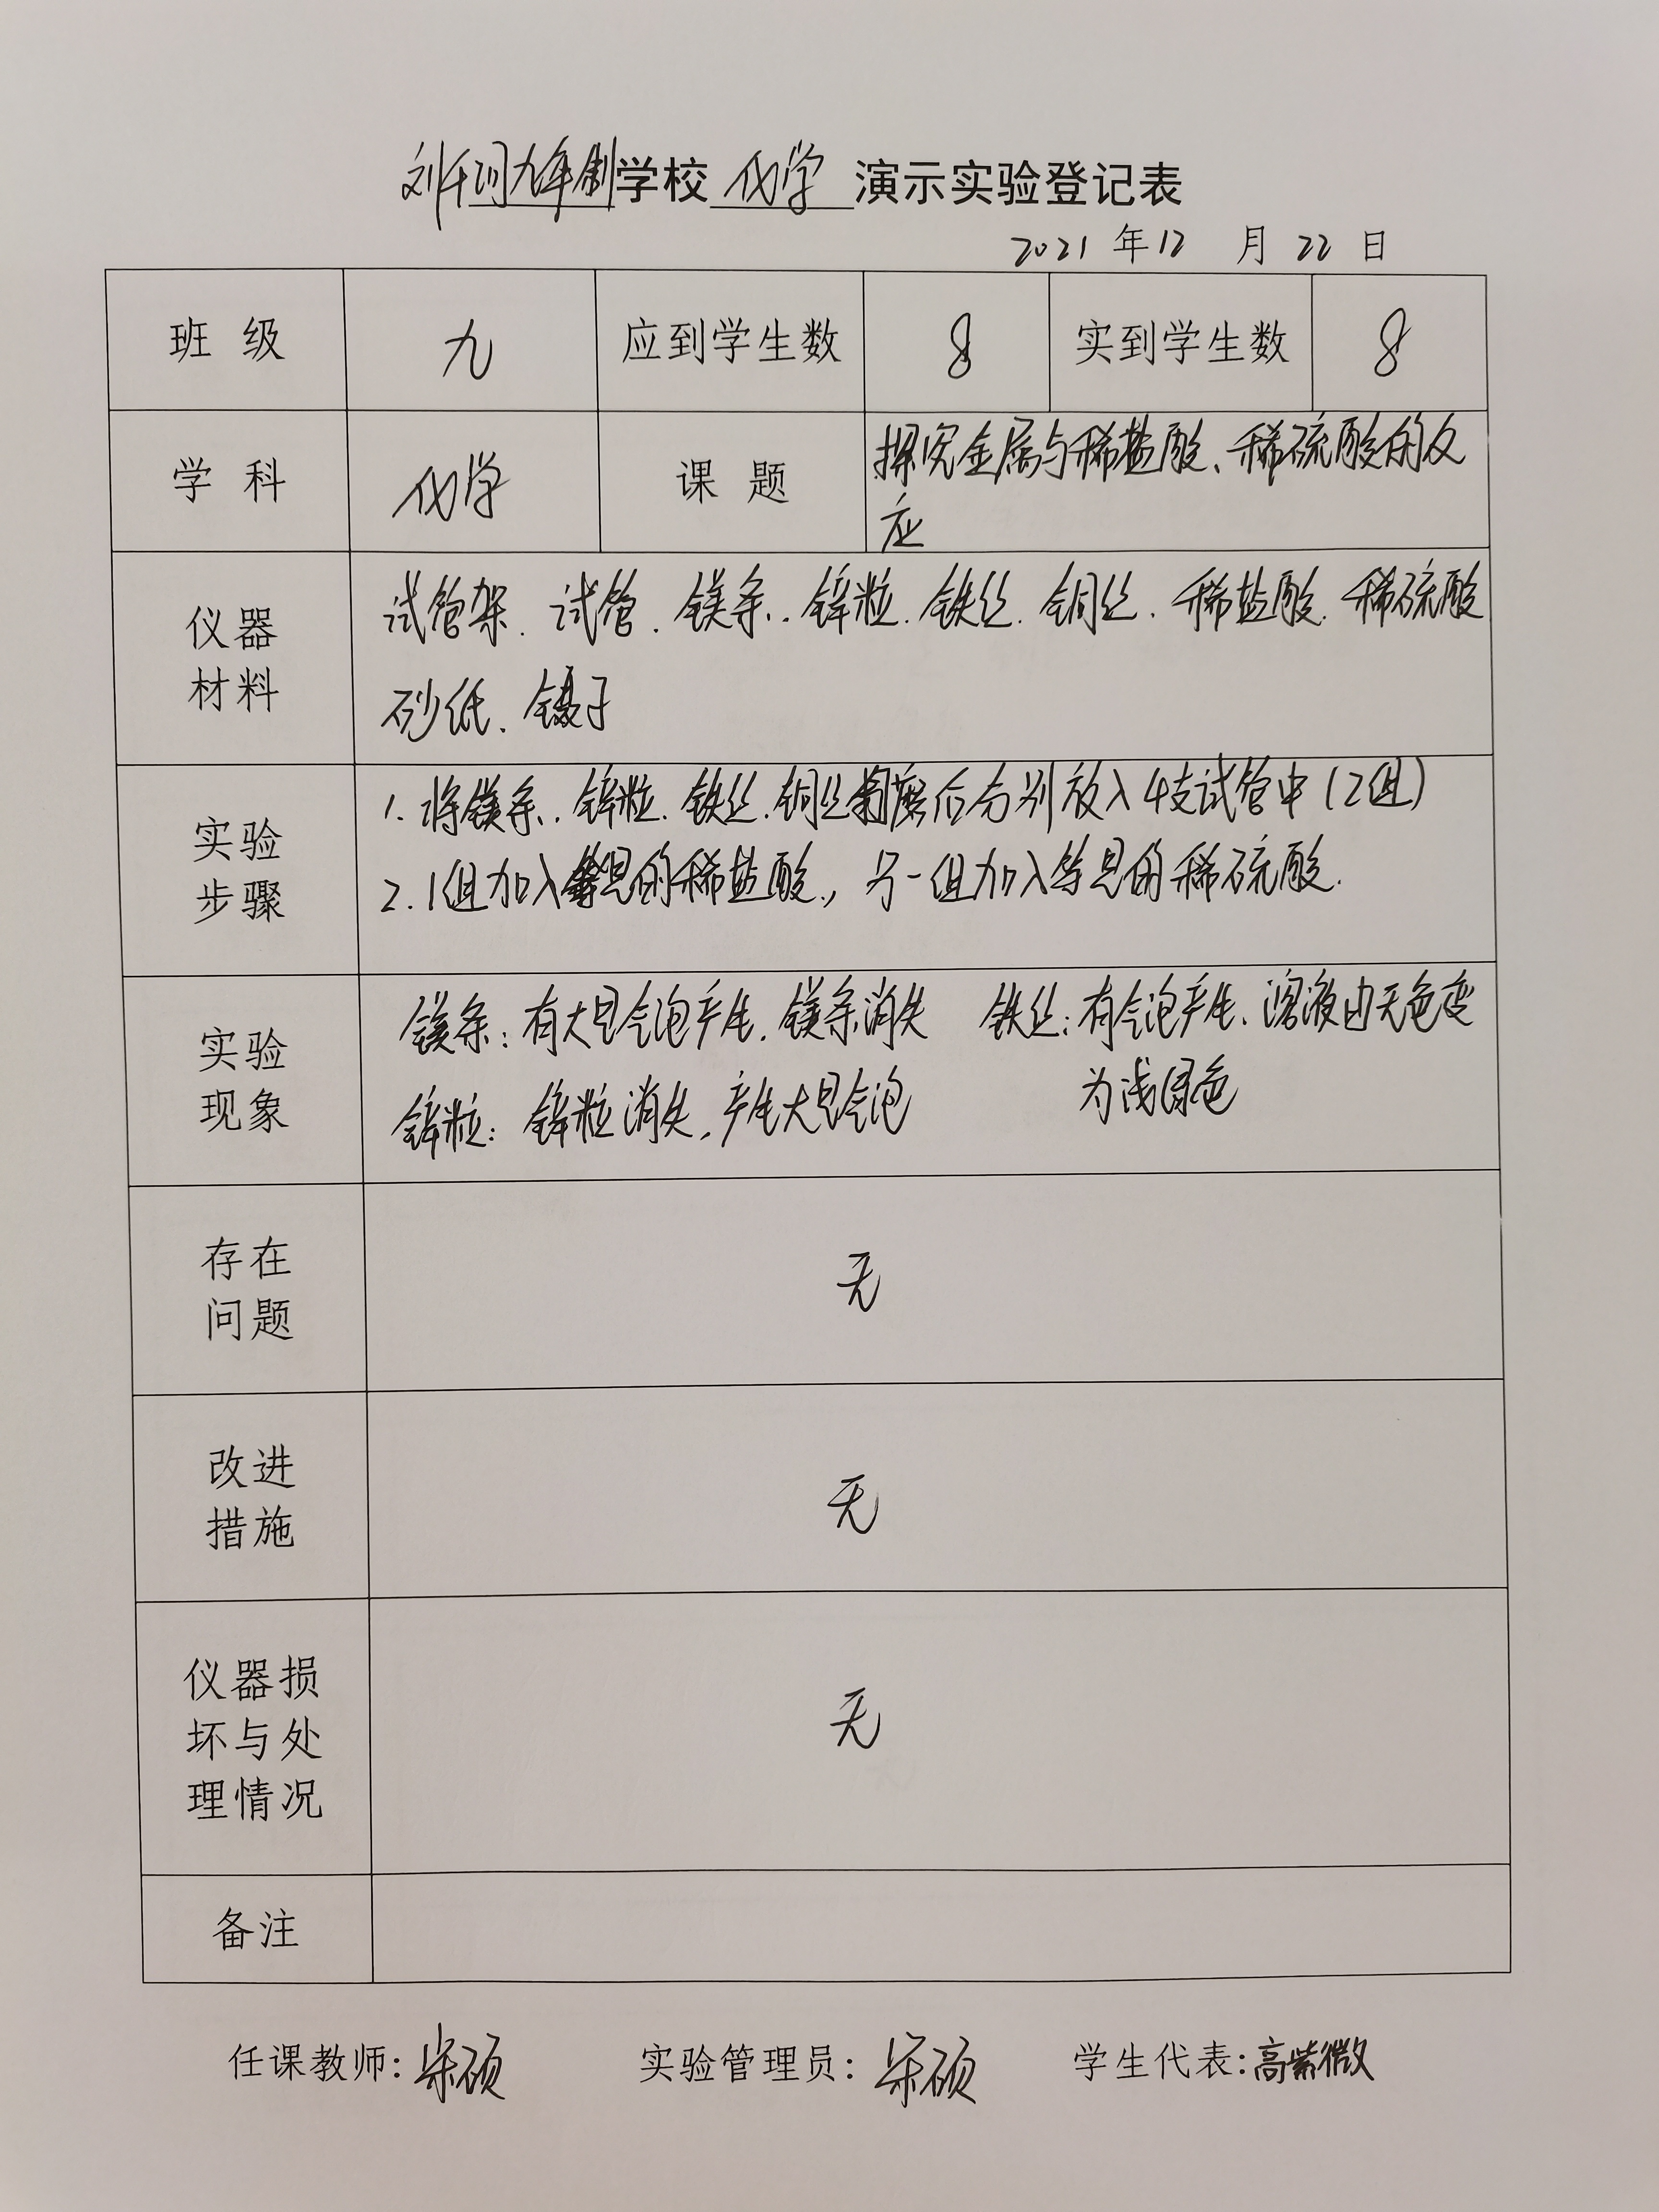 刘千河九年制学校 化学 演示实验登记表
2021 年 12 月 22 日
班级 九 应到学生数 8 实到学生数 8
学科 化学 课题 探究金属与稀盐酸、稀硫酸的反
应
仪器
材料
试管架、试管、镁条、锌粒、铁丝、铜丝、稀盐酸、稀硫酸
砂纸、镊子
实验
步骤
1. 将镁条、锌粒、铁丝、铜丝打磨后分别放入4支试管中(2组)
2. 1组加入等量的稀盐酸，另一组加入等量的稀硫酸.
实验
现象
镁条：有大量气泡产生，镁条消失 铁丝：有气泡产生、溶液由无色变
为浅绿色
锌粒：锌粒消失，产生大量气泡
存在
问题
无
改进
措施
无
仪器损
坏与处
理情况
无
备注
任课教师：宋硕 实验管理员：宋硕 学生代表：高紫微